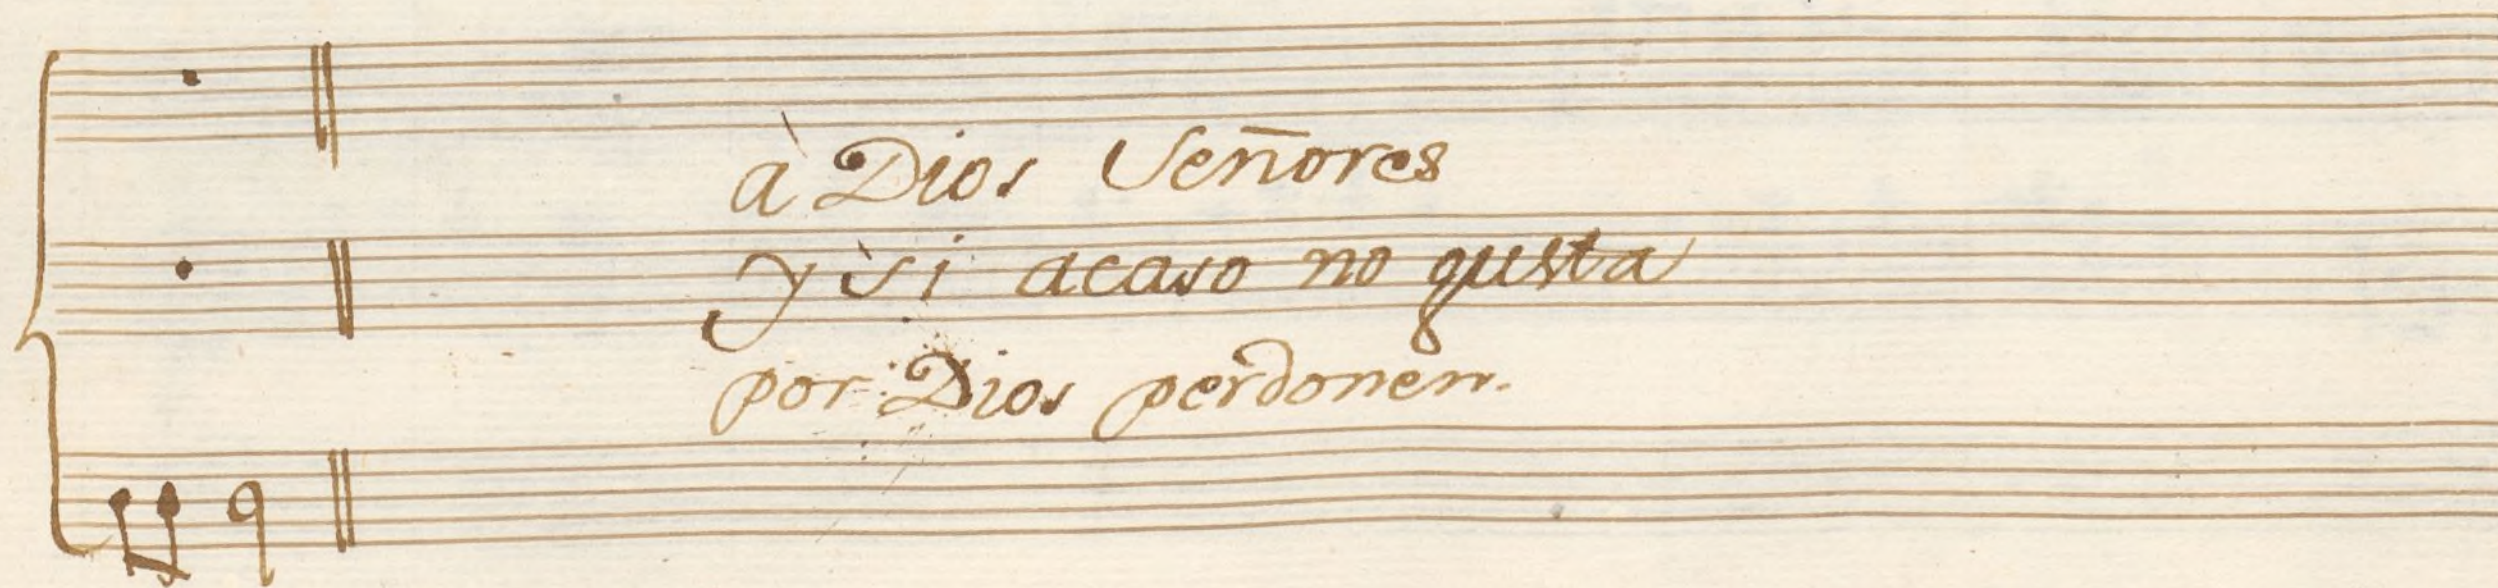 à Dios Señores
y si acaso no gusta
por Dios perdonen.